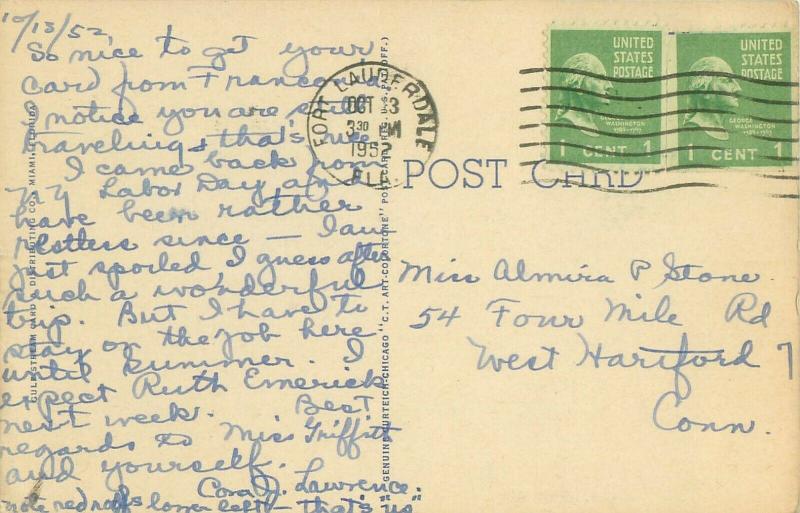 10/13/52
So nice to get your
card from Franconia.
I notice you are still
traveling & that's nice.
I came back from
N.Y. Labor Day and
have been rather
restless since — I am
just spoiled, I guess after
such a wonderful
trip. But I have to
stay on the job here
until summer. I
expect Ruth Emerick
next week. Best
regards to Miss Griffith
and yourself.
Cora J. Lawrence.
note red roofs lower left — that's "us"
GULF STREAM CARD & DISTRIBUTING CO., MIAMI, FLORIDA
GENUINE CURTEICH-CHICAGO "C.T. ART-COLORTONE" POST CARD (REG. U.S. PAT. OFF.)
FORT LAUDERDALE
OCT 13
3 30 PM
1952
FLA.
UNITED
STATES
POSTAGE
GEORGE
WASHINGTON
1789-1797
1 CENT 1
UNITED
STATES
POSTAGE
GEORGE
WASHINGTON
1789-1797
1 CENT 1
POST CARD
Miss Almira P Stone
54 Four Mile Rd
West Hartford 7
Conn.